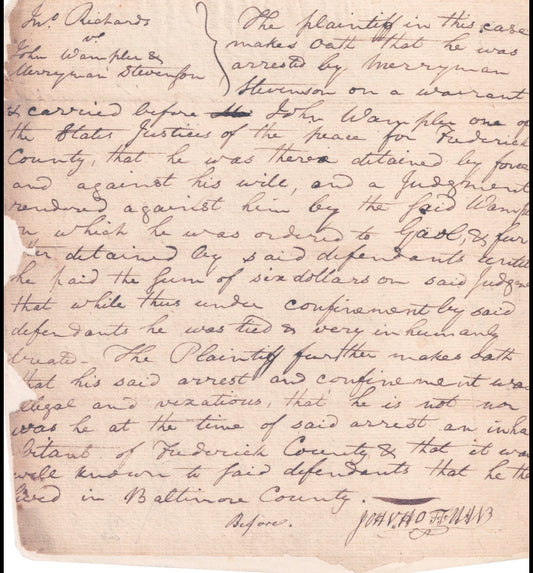 Jno. Richards
vs
John Wampler &
Merryman Stevenson
The plaintiff in this case
makes Oath that he was
arrested by Merryman
Stevenson on a warrant
& carried before John Wampler one of
the States Justices of the peace for Frederick
County, that he was there detained by force
and against his will, and a Judgment
rendered against him by the said Wamp
on which he was ordered to Gaol, & fur
ther detained by said defendants until
he paid the sum of six dollars on said Judgm
that while thus under confinement by said
defendants he was tied & very inhumanly
treated - The Plaintiff further makes oath
that his said arrest and confinement was
illegal and vexatious, that he is not nor
was he at the time of said arrest an inha
bitant of Frederick County & that it was
well known to said defendants that he the
lived in Baltimore County.
Before.